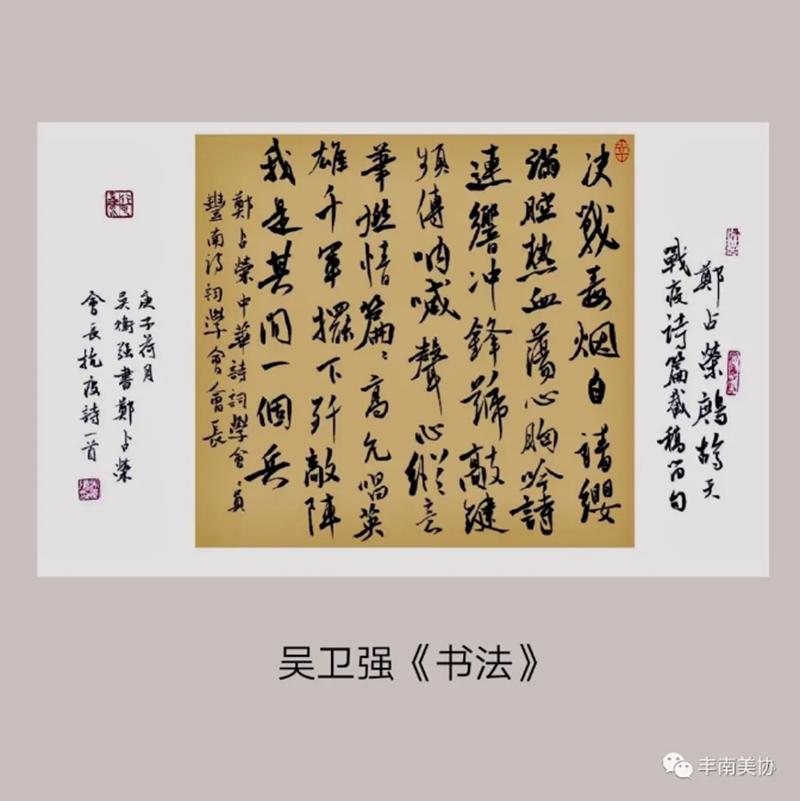 鄭占榮鷓鴣天
戰疫詩篇截稿留句
决戰毒烟自請纓
滿腔热血蕩心胸吟詩
連響冲鋒號敲鍵
頻傳呐喊聲心縱
華燃情篇〻高亢唱英
雄千軍擺下歼敵陣
我是其间一個兵
鄭占榮中華詩詞學会〻員
豐南诗詞學會會長
庚子荷月
吴衛强書鄭占榮
會長抗疫詩一首
吴卫强《书法》
丰南美协